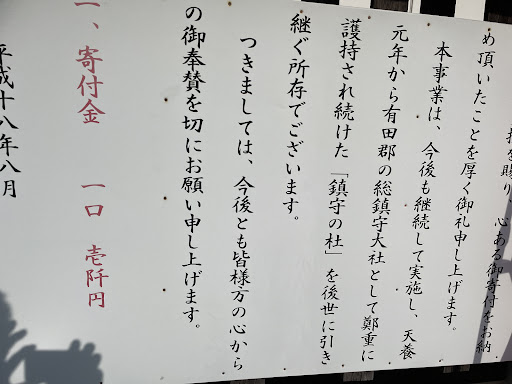 を賜り、心ある御寄付をお納
め頂いたことを厚く御礼申し上げます。
本事業は、今後も継続して実施し、天養
元年から有田郡の総鎮守大社として鄭重に
護持され続けた「鎮守の杜」を後世に引き
継ぐ所存でございます。
つきましては、今後とも皆様方の心から
の御奉賛を切にお願い申し上げます。
一、寄付金 一口 壱阡円
平成十八年八月